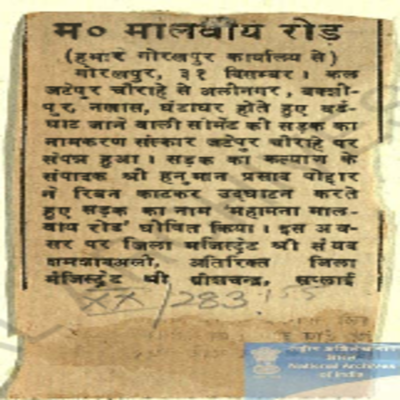 म० मालवीय रोड
(हमारे गोरखपुर कार्यालय से)
गोरखपुर, ३१ दिसम्बर। कल
जटेपुर चौराहे से अलीनगर, बक्शी-
पुर, नखास, घंटाघर होते हुए बर्ड-
घाट जाने वाली सीमेंट की सड़क का
नामकरण संस्कार जटेपुर चौराहे पर
संपन्न हुआ। सड़क का कल्याण के
संपादक श्री हनुमान प्रसाद पोद्दार
ने रिबन काटकर उद्घाटन करते
हुए सड़क का नाम 'महामना माल-
वीय रोड' घोषित किया। इस अव-
सर पर जिला मजिस्ट्रेट श्री सैयद
अतिरिक्त जिला
मजिस्ट्रेट श्री सप्लाई
XX/283
राष्ट्रीय अभिलेखागार
भारत
National Archives
of India